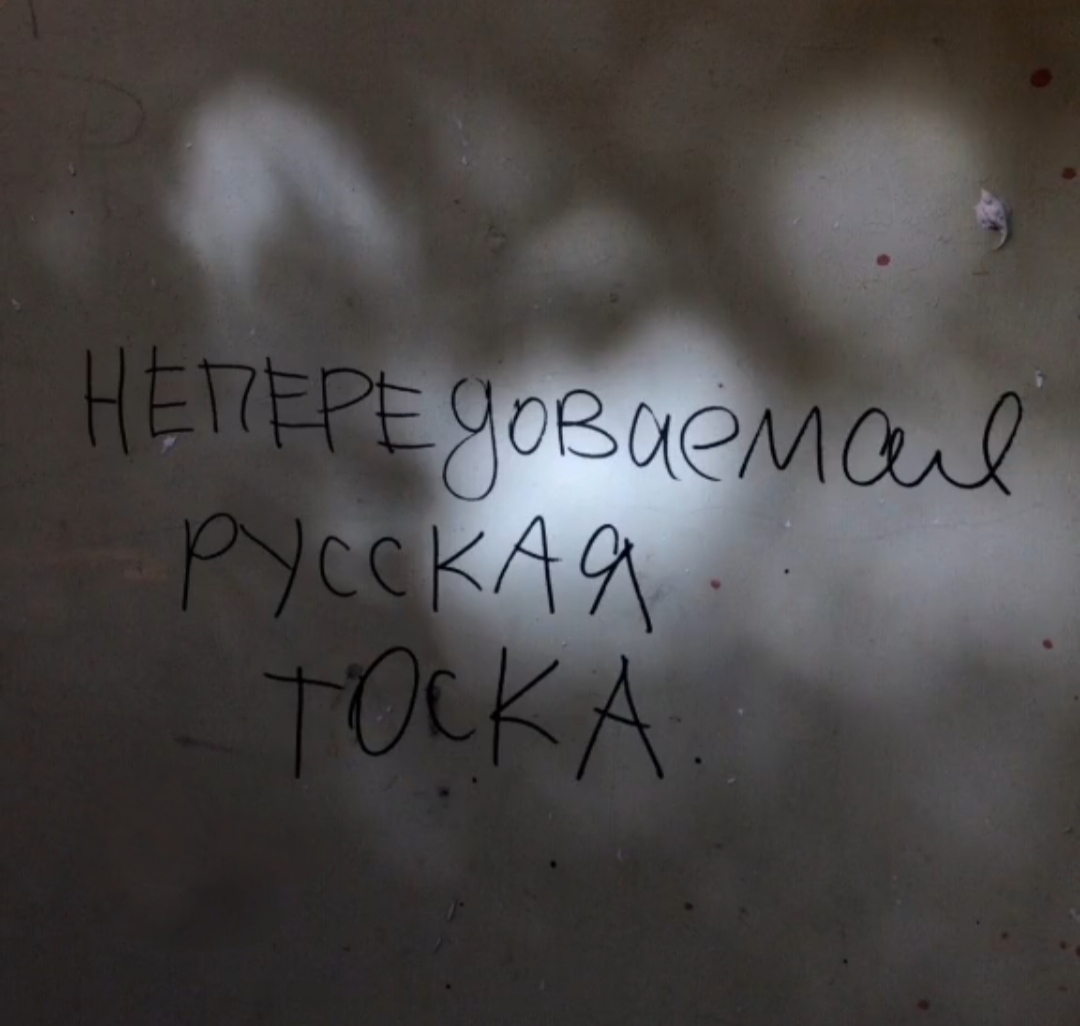 НЕПЕРЕДОВАЕМАЯ
РУССКАЯ
ТОСКА.